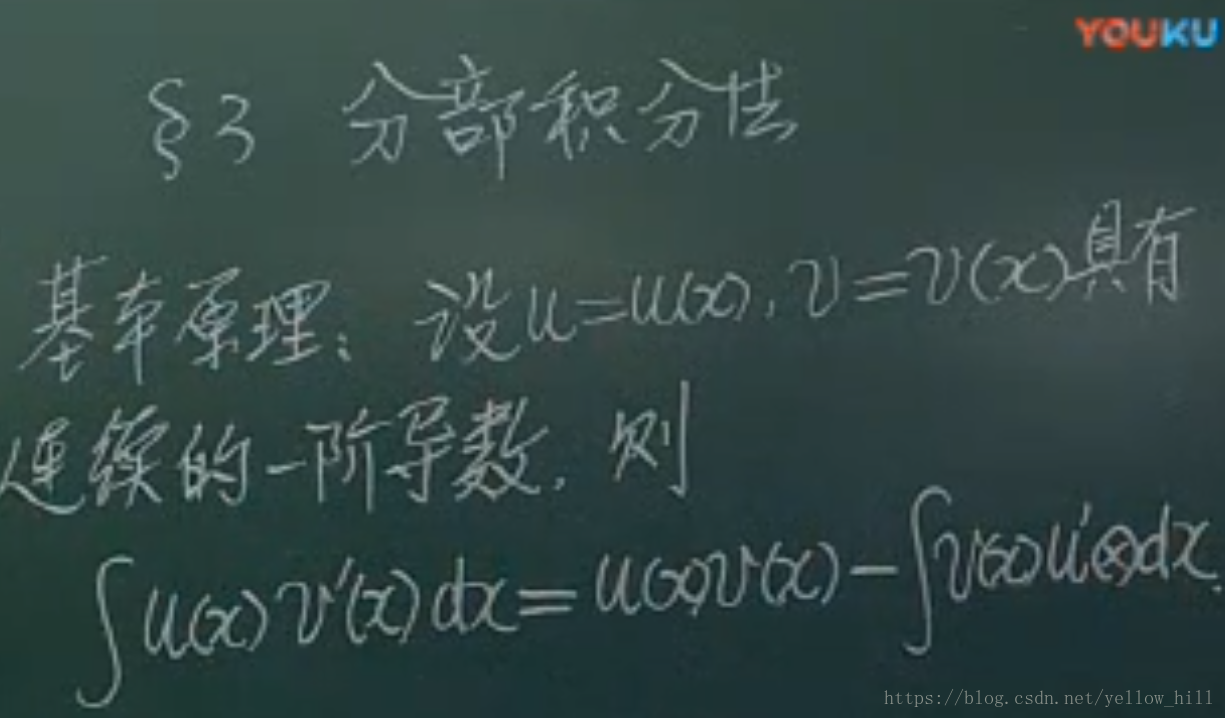 YOUKU
§3 分部积分法
基本原理：设u=u(x), v=v(x)具有
连续的一阶导数, 则
∫u(x)v'(x)dx=u(x)v(x)-∫v(x)u'(x)dx.
https://blog.csdn.net/yellow_hill